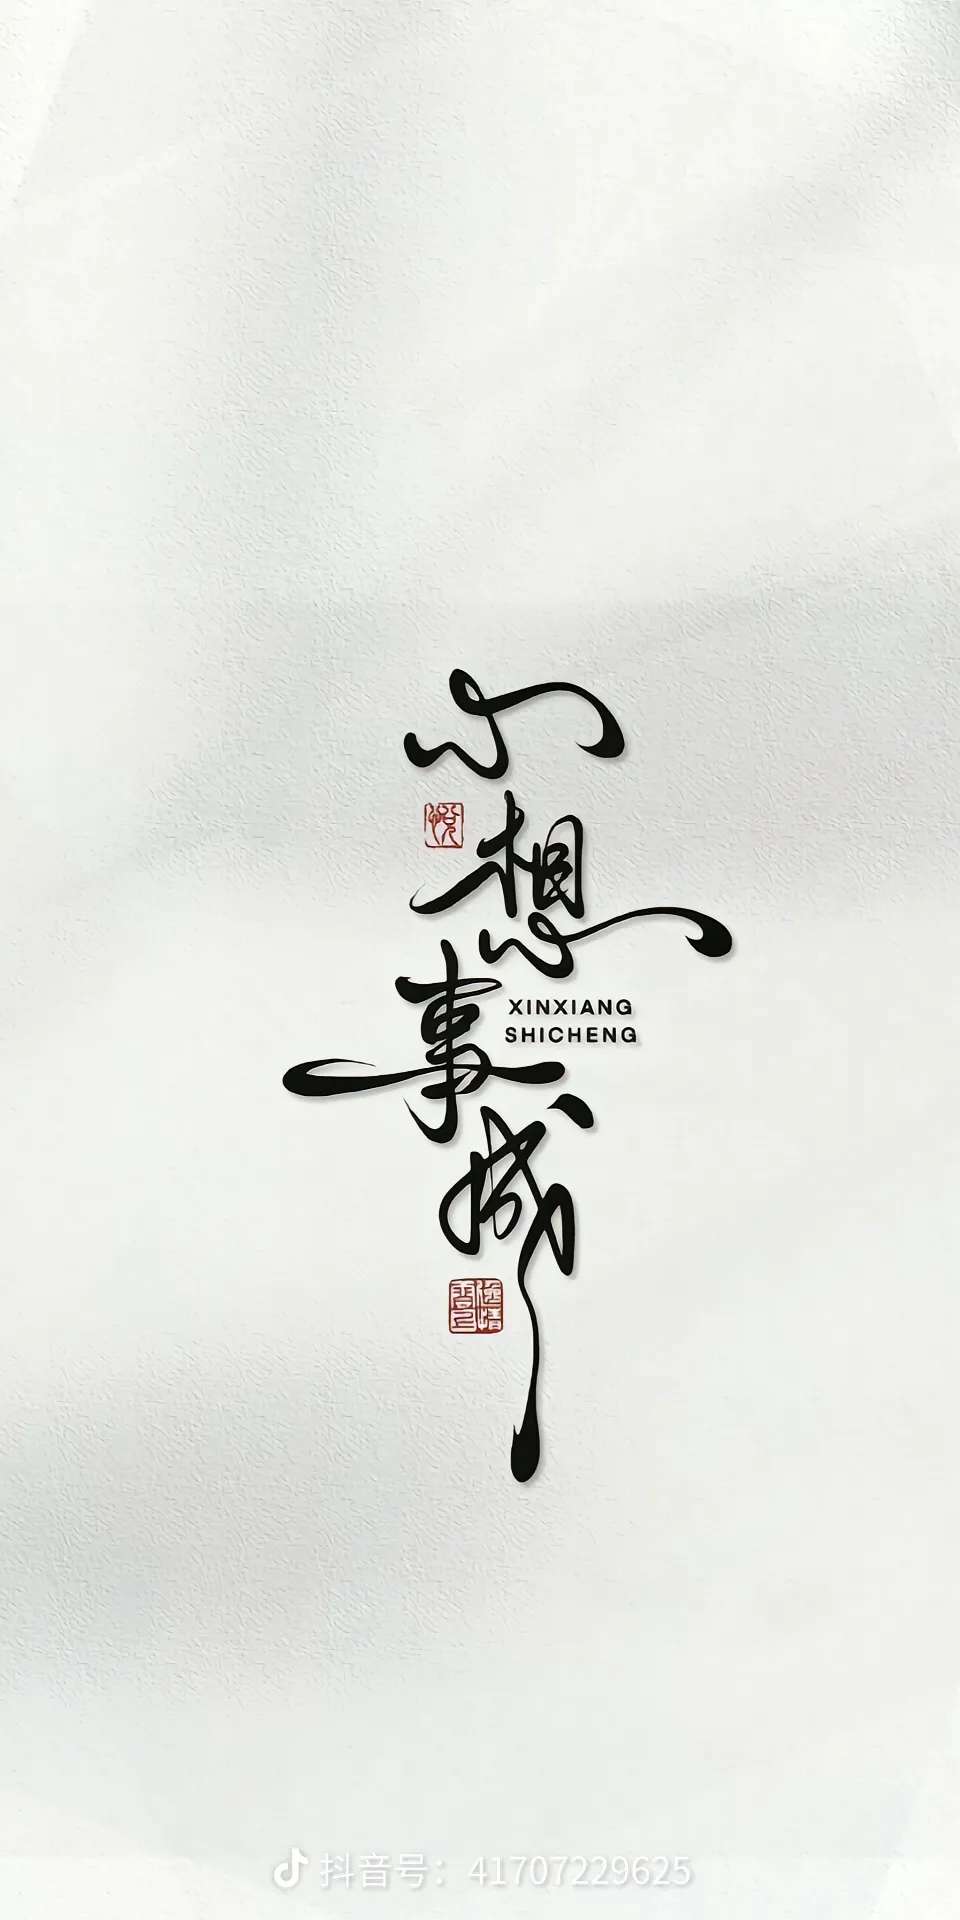 心
想
事
成
XINXIANG
SHICHENG
悦
抖音号：41707229625